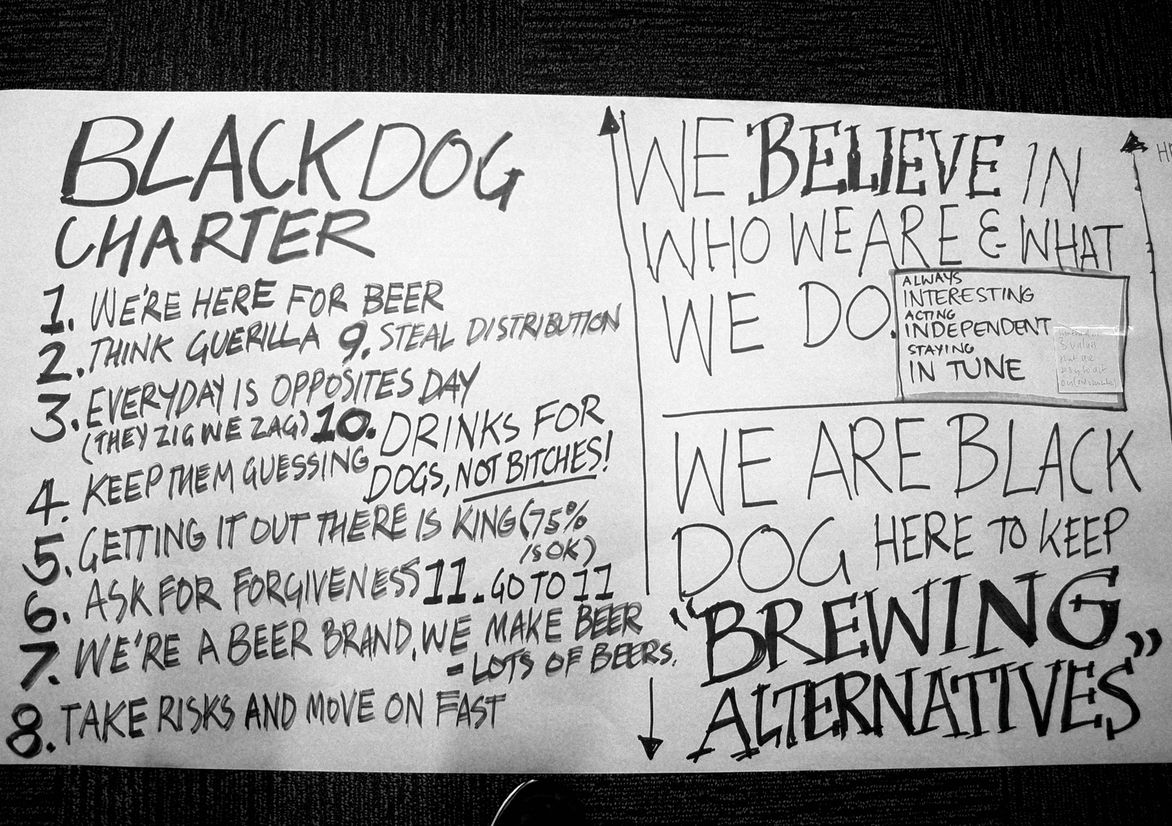 BLACK DOG
CHARTER
1. WE'RE HERE FOR BEER
2. THINK GUERILLA
3. EVERYDAY IS OPPOSITES DAY
(THEY ZIG WE ZAG)
4. KEEP THEM GUESSING
5. GETTING IT OUT THERE IS KING (75%
IS OK)
6. ASK FOR FORGIVENESS
7. WE'RE A BEER BRAND, WE MAKE BEER
- LOTS OF BEERS.
8. TAKE RISKS AND MOVE ON FAST
9. STEAL DISTRIBUTION
10. DRINKS FOR
DOGS, NOT BITCHES!
11. GO TO 11
WE BELIEVE IN
WHO WE ARE & WHAT
WE DO.
ALWAYS
INTERESTING
ACTING
INDEPENDENT
STAYING
IN TUNE
WE ARE BLACK
DOG HERE TO KEEP
"BREWING
ALTERNATIVES"